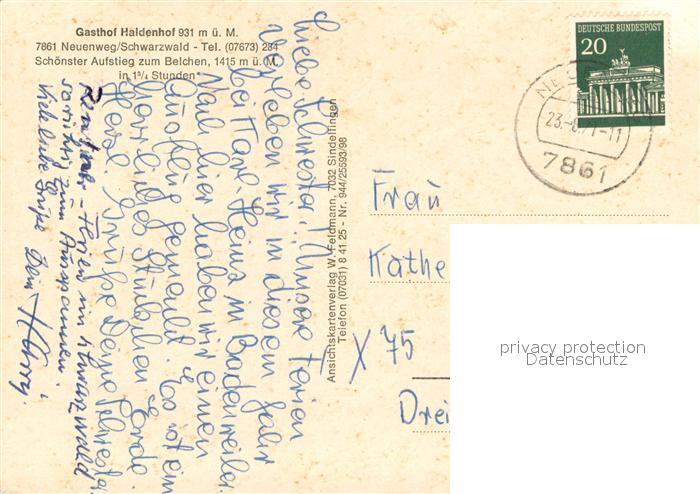 Gasthof Haldenhof 931 m ü. M.
7861 Neuenweg/Schwarzwald - Tel. (07673) 284
Schönster Aufstieg zum Belchen, 1415 m ü. M.
in 1³/₄ Stunden
DEUTSCHE BUNDESPOST
20
7861
Liebe Schwester! Unsere Ferien
verleben wir in diesem Jahr
bei Karl-Heinz in Badenweiler.
Nach hier haben wir einen
Ausflug gemacht. Es ist ein
herrliches Stückchen Erde.
Herzl. Grüße Deine Schwester
Rentner-Ferien im Schwarzwald
zum Ausspannen.
Viele liebe Grüße Dein Harry.
Ansichtskartenverlag W. Feldmann, 7032 Sindelfingen
Telefon (07031) 8 41 25 - Nr. 944/25593/98
Frau
Käthe
X 75
Drei
privacy protection
Datenschutz